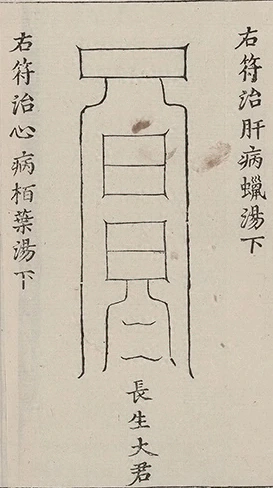 右符治肝病蠟湯下
長生大君
右符治心病栢葉湯下